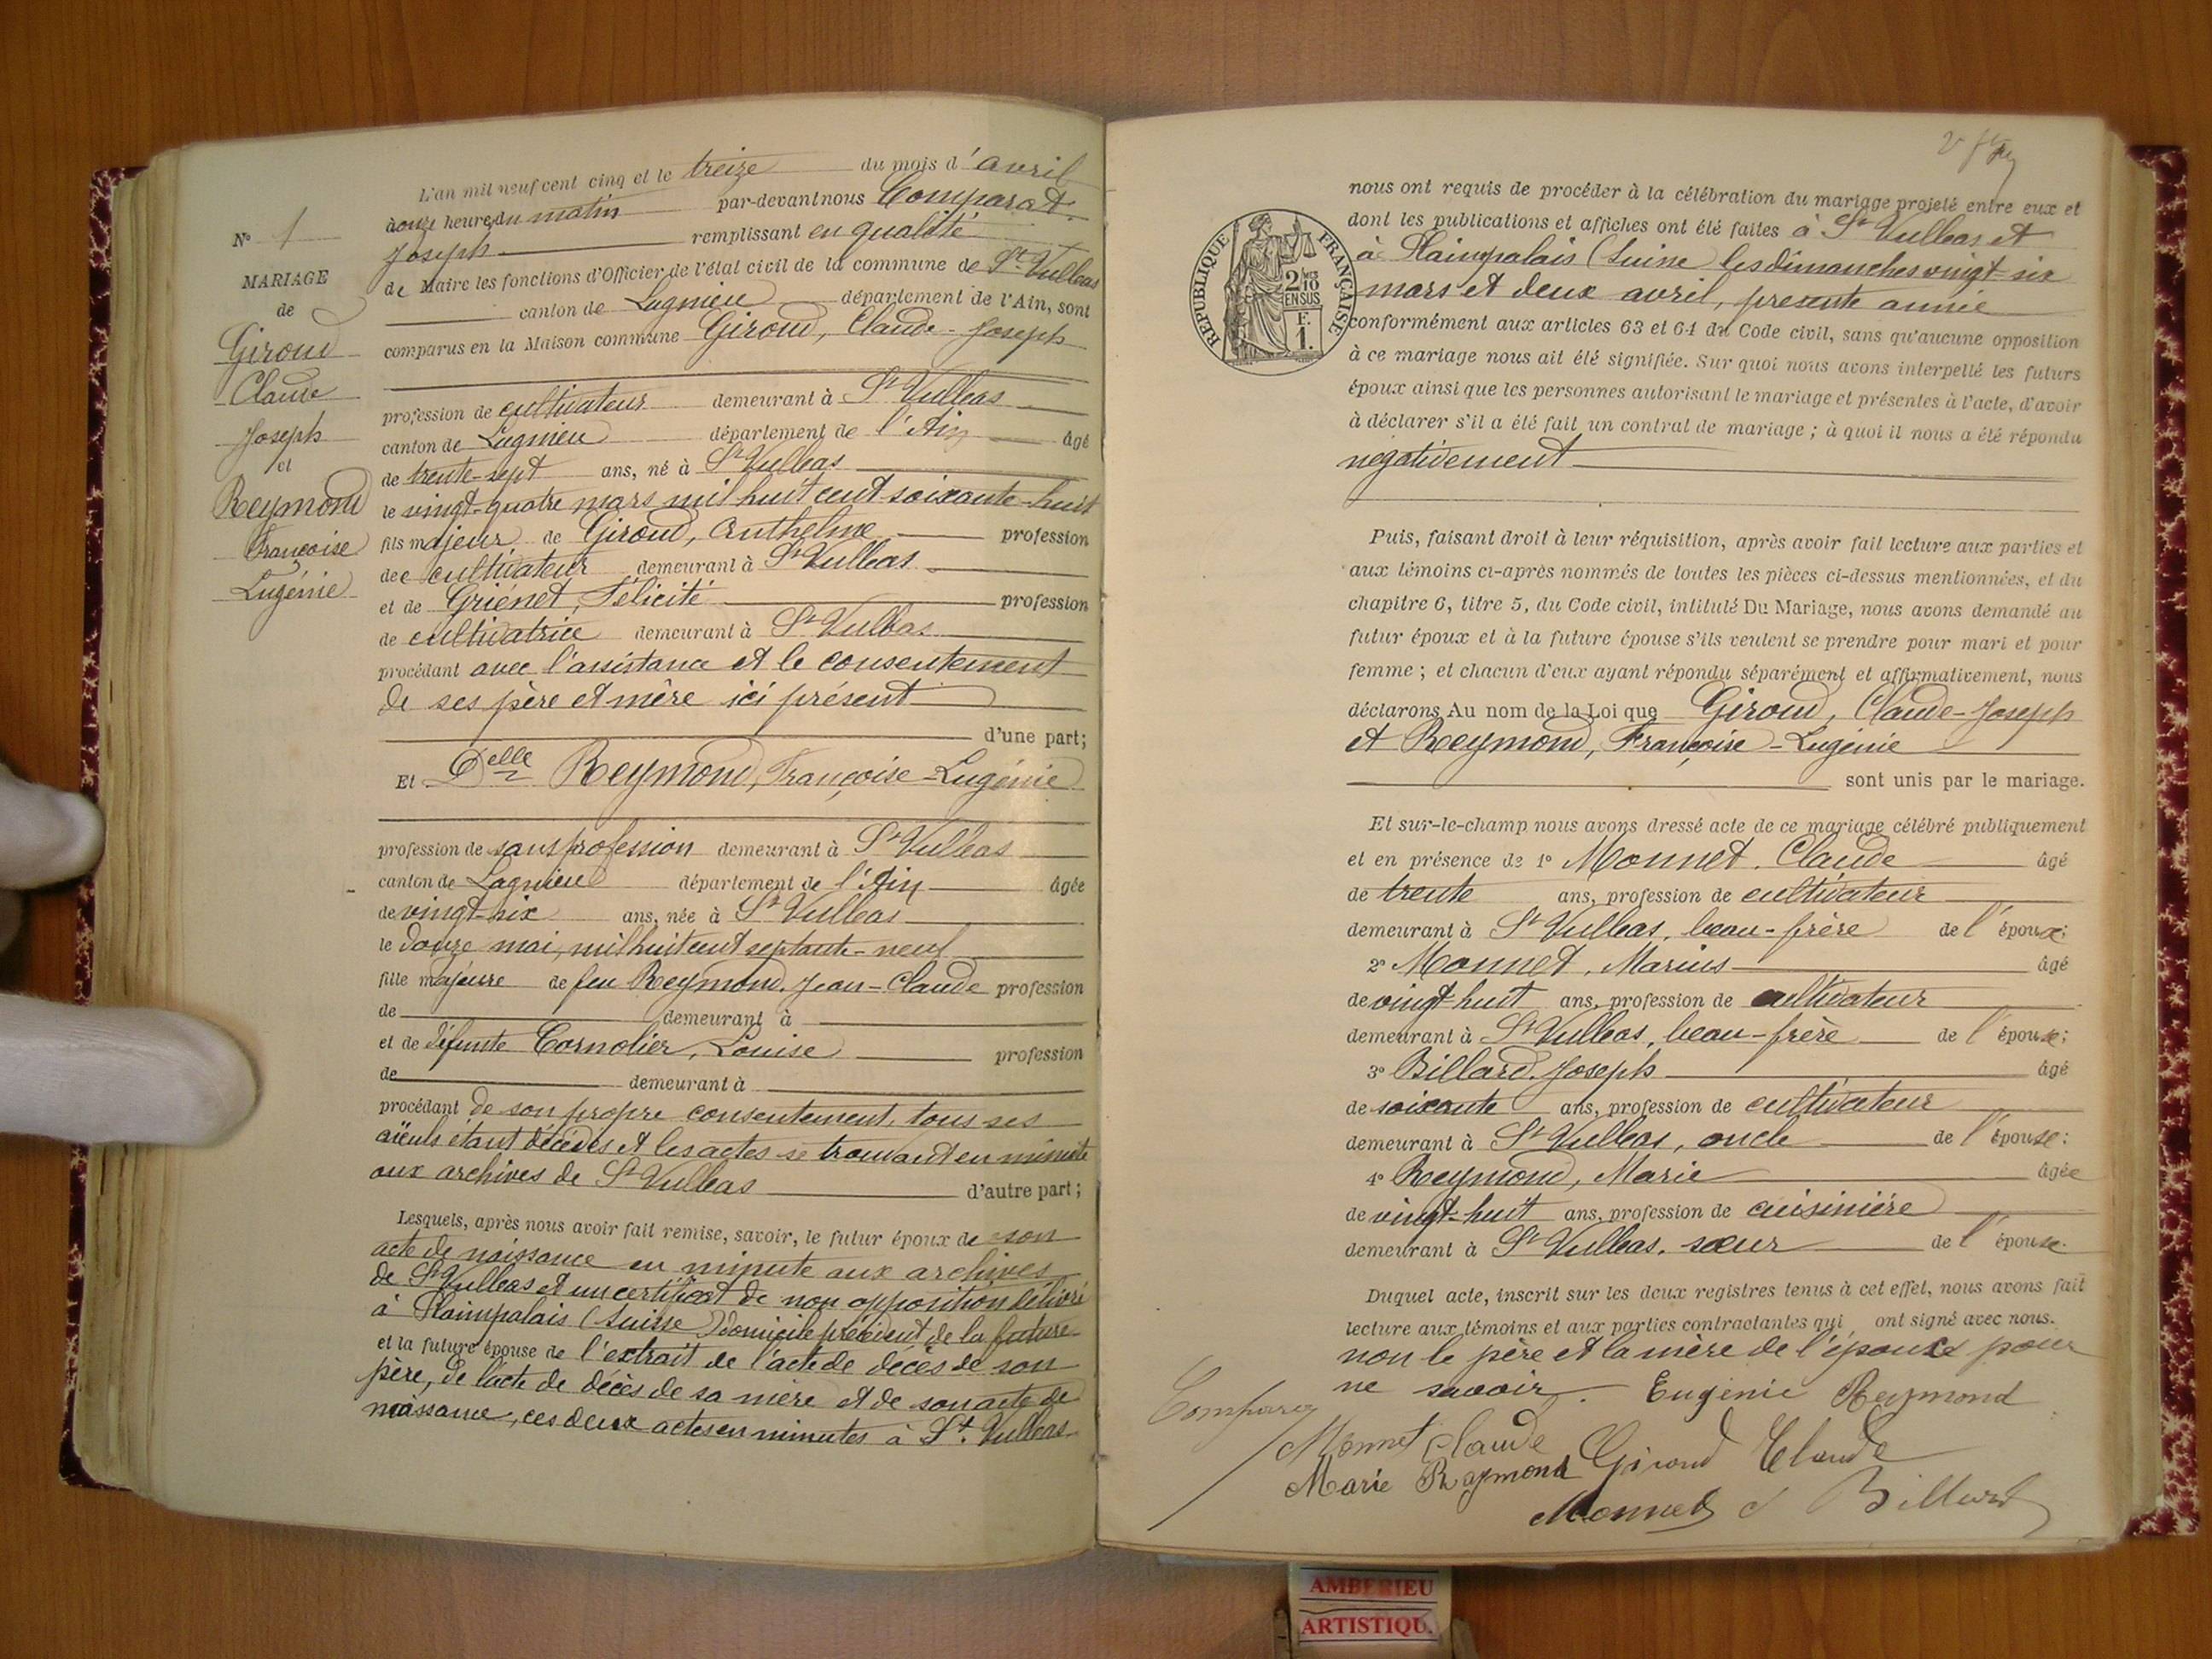 L'an mil neuf cent cinq et le treize du mois d'avril
à onze heures du matin par-devant nous Comparat
Joseph remplissant en qualité
de Maire les fonctions d'Officier de l'état civil de la commune de St Vulbas
canton de Lagnieu département de l'Ain, sont
comparus en la Maison commune Giroud, Claude-Joseph
profession de cultivateur demeurant à St Vulbas
canton de Lagnieu département de l'Ain âgé
de trente-sept ans, né à St Vulbas
le vingt-quatre mars mil huit cent soixante-huit
fils majeur de Giroud, Anthelme profession
de cultivateur demeurant à St Vulbas
et de Griénet, Félicité profession
de cultivatrice demeurant à St Vulbas
procédant avec l'assistance et le consentement
de ses père et mère ici présent
d'une part;
Et Delle Reymond, Françoise-Eugénie
profession de sans profession demeurant à St Vulbas
canton de Lagnieu département de l'Ain âgée
de vingt-six ans, née à St Vulbas
le douze mai, mil huit cent septante-neuf
fille majeure de feu Reymond, Jean-Claude profession
de demeurant à
et de défunte Cornolier, Louise profession
de demeurant à
procédant de son propre consentement, tous ses
aïeuls étant décédés et les actes se trouvant en minute
aux archives de St Vulbas d'autre part;
Lesquels, après nous avoir fait remise, savoir, le futur époux de son
acte de naissance en minute aux archives
de St Vulbas et un certificat de non opposition délivré
à Plainpalais (Suisse) domicile précédent de la future
et la future épouse de l'extrait de l'acte de décès de son
père, de l'acte de décès de sa mère et de son acte de
naissance, ces deux actes en minutes à St. Vulbas
N° 1
MARIAGE
de
Giroud
Claude
Joseph
et
Reymond
Françoise
Eugénie
nous ont requis de procéder à la célébration du mariage projeté entre eux et
dont les publications et affiches ont été faites à St Vulbas et
à Plainpalais (Suisse) les dimanches vingt-six
mars et deux avril, présente année
conformément aux articles 63 et 64 du Code civil, sans qu'aucune opposition
à ce mariage nous ait été signifiée. Sur quoi nous avons interpellé les futurs
époux ainsi que les personnes autorisant le mariage et présentes à l'acte, d'avoir
à déclarer s'il a été fait un contrat de mariage; à quoi il nous a été répondu
négativement
RÉPUBLIQUE FRANÇAISE
2/10
EN SUS
F.
1.
Puis, faisant droit à leur réquisition, après avoir fait lecture aux parties et
aux témoins ci-après nommés de toutes les pièces ci-dessus mentionnées, et du
chapitre 6, titre 5, du Code civil, intitulé Du Mariage, nous avons demandé au
futur époux et à la future épouse s'ils veulent se prendre pour mari et pour
femme; et chacun d'eux ayant répondu séparément et affirmativement, nous
déclarons Au nom de la Loi que Giroud, Claude-Joseph
et Reymond, Françoise-Eugénie
sont unis par le mariage.
Et sur-le-champ nous avons dressé acte de ce mariage célébré publiquement
et en présence de 1° Monnet, Claude âgé
de trente ans, profession de cultivateur
demeurant à St Vulbas, beau-frère de l'époux;
2° Monnet, Marius âgé
de vingt-huit ans, profession de cultivateur
demeurant à St Vulbas, beau-frère de l'épouse;
3° Billard, Joseph âgé
de soixante ans, profession de cultivateur
demeurant à St Vulbas, oncle de l'épouse;
4° Reymond, Marie âgée
de vingt-huit ans, profession de cuisinière
demeurant à St Vulbas, sœur de l'épouse.
Duquel acte, inscrit sur les deux registres tenus à cet effet, nous avons fait
lecture aux témoins et aux parties contractantes qui ont signé avec nous.
non le père et la mère de l'époux pour
ne savoir. Eugénie Reymond
Monnet Claude Giroud Claude
Marie Raymond
Monnet J Billard
AMBERIEU
ARTISTIQU.